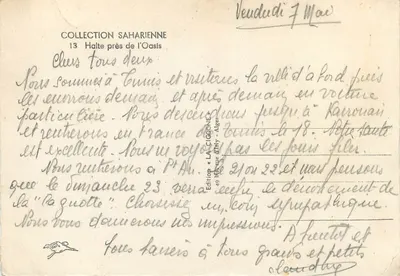 Vendredi 7 Mai
COLLECTION SAHARIENNE
13 Halte près de l'Oasis
Chers tous deux
Nous sommes à Tunis et visitons la ville d'abord puis
les environs demain et après demain en voiture
particulière. Nous descendons jusqu'à Kairouan
et rentrerons en France de Tunis le 18. Notre santé
est excellente. Nous ne voyons pas les jours filer.
Nous rentrerons à St 21 ou 22 et nous pensons
que le dimanche 23 verra le dénouement de
la "Paquotte". Choisissez un coin sympathique.
Nous vous donnerons nos impressions. A bientôt et
bons baisers à tous grands et petits